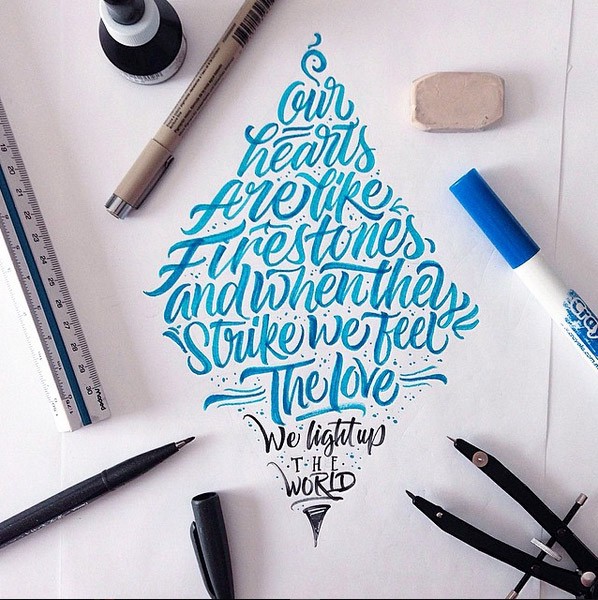 our
hearts
Are like
Firestones
and when they
Strike we feel
The Love
We light up
THE
WORLD
19
20
21
22
23
24
25
26
27
28
29
30